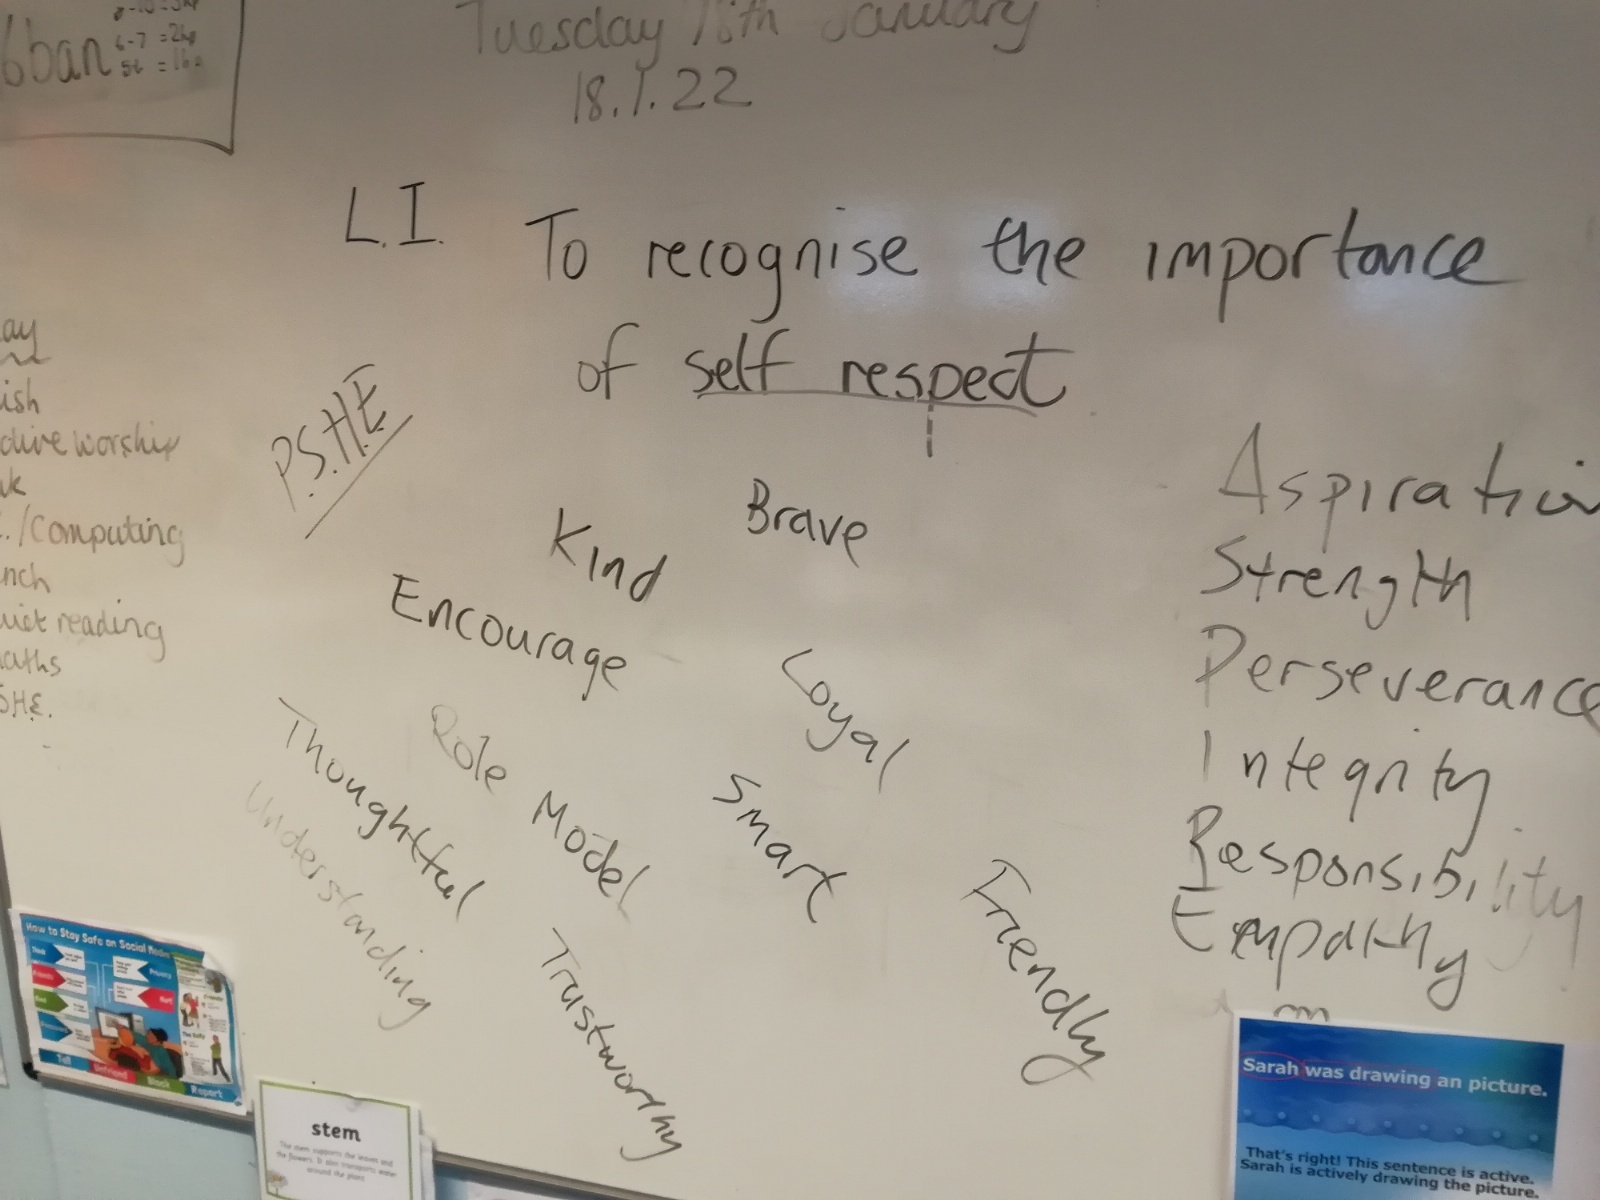 Tuesday 18th January
18.1.22
6ban
6-7 = 2hp
L.I. To recognise the importance
of self respect
P.S.H.E
ay
ish
ctive worship
./Computing
nch
uiet reading
aths
SHE.
Brave
Kind
Encourage
Loyal
Role Model
Smart
Thoughtful
Understanding
Trustworthy
Friendly
Aspiration
Strength
Perseverance
Integrity
Responsibility
Empathy
How to Stay Safe on Social Media
Tell Unfriend Block Report
stem
The stem supports the leaves and
the flowers. It also transports water
around the plant.
Sarah was drawing an picture.
That's right! This sentence is active.
Sarah is actively drawing the picture.